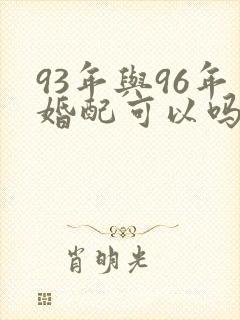 93年與96年
婚配可以吗
肖明光